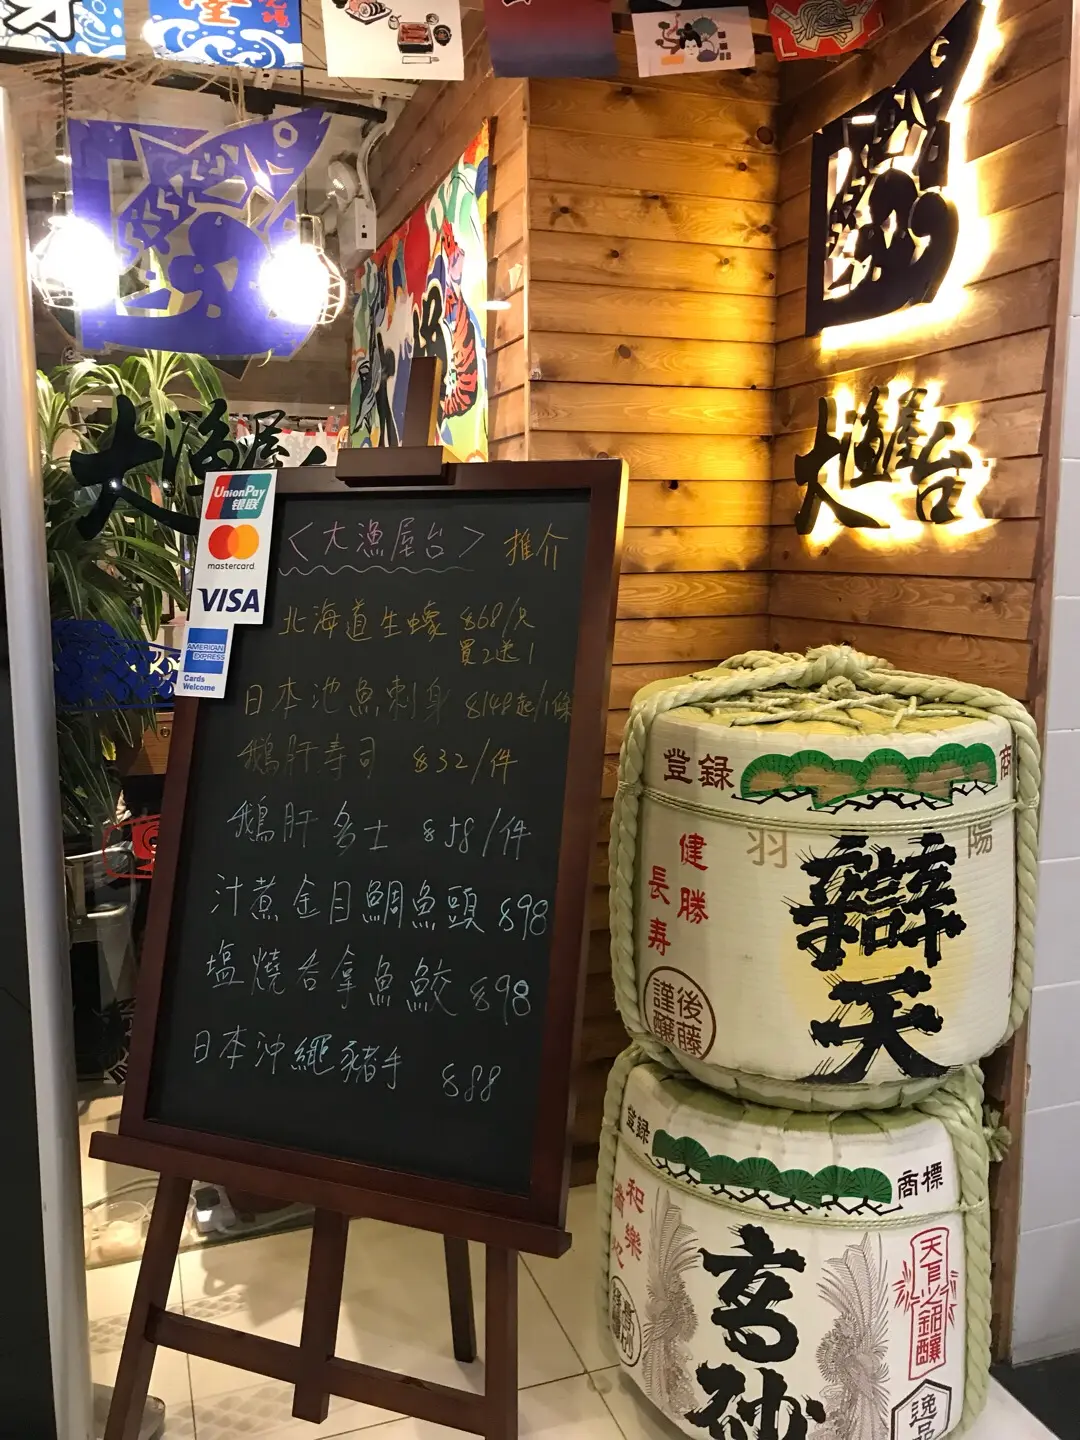 大漁屋台
大漁屋
UnionPay
银联
mastercard
VISA
AMERICAN
EXPRESS
Cards
Welcome
<大漁屋台> 推介
北海道生蠔 $68/只
買2送1
日本池魚刺身 $148起/1條
鵝肝寿司 $32/件
鵝肝多士 $58/件
汁煮金目鯛魚頭 $98
塩燒吞拿魚鮫 $98
日本沖繩豬手 $88
登録
商
羽
陽
健勝
長寿
辯天
後藤
謹醸
登録
商標
和樂
玄妙
天下一銘醸
逸品